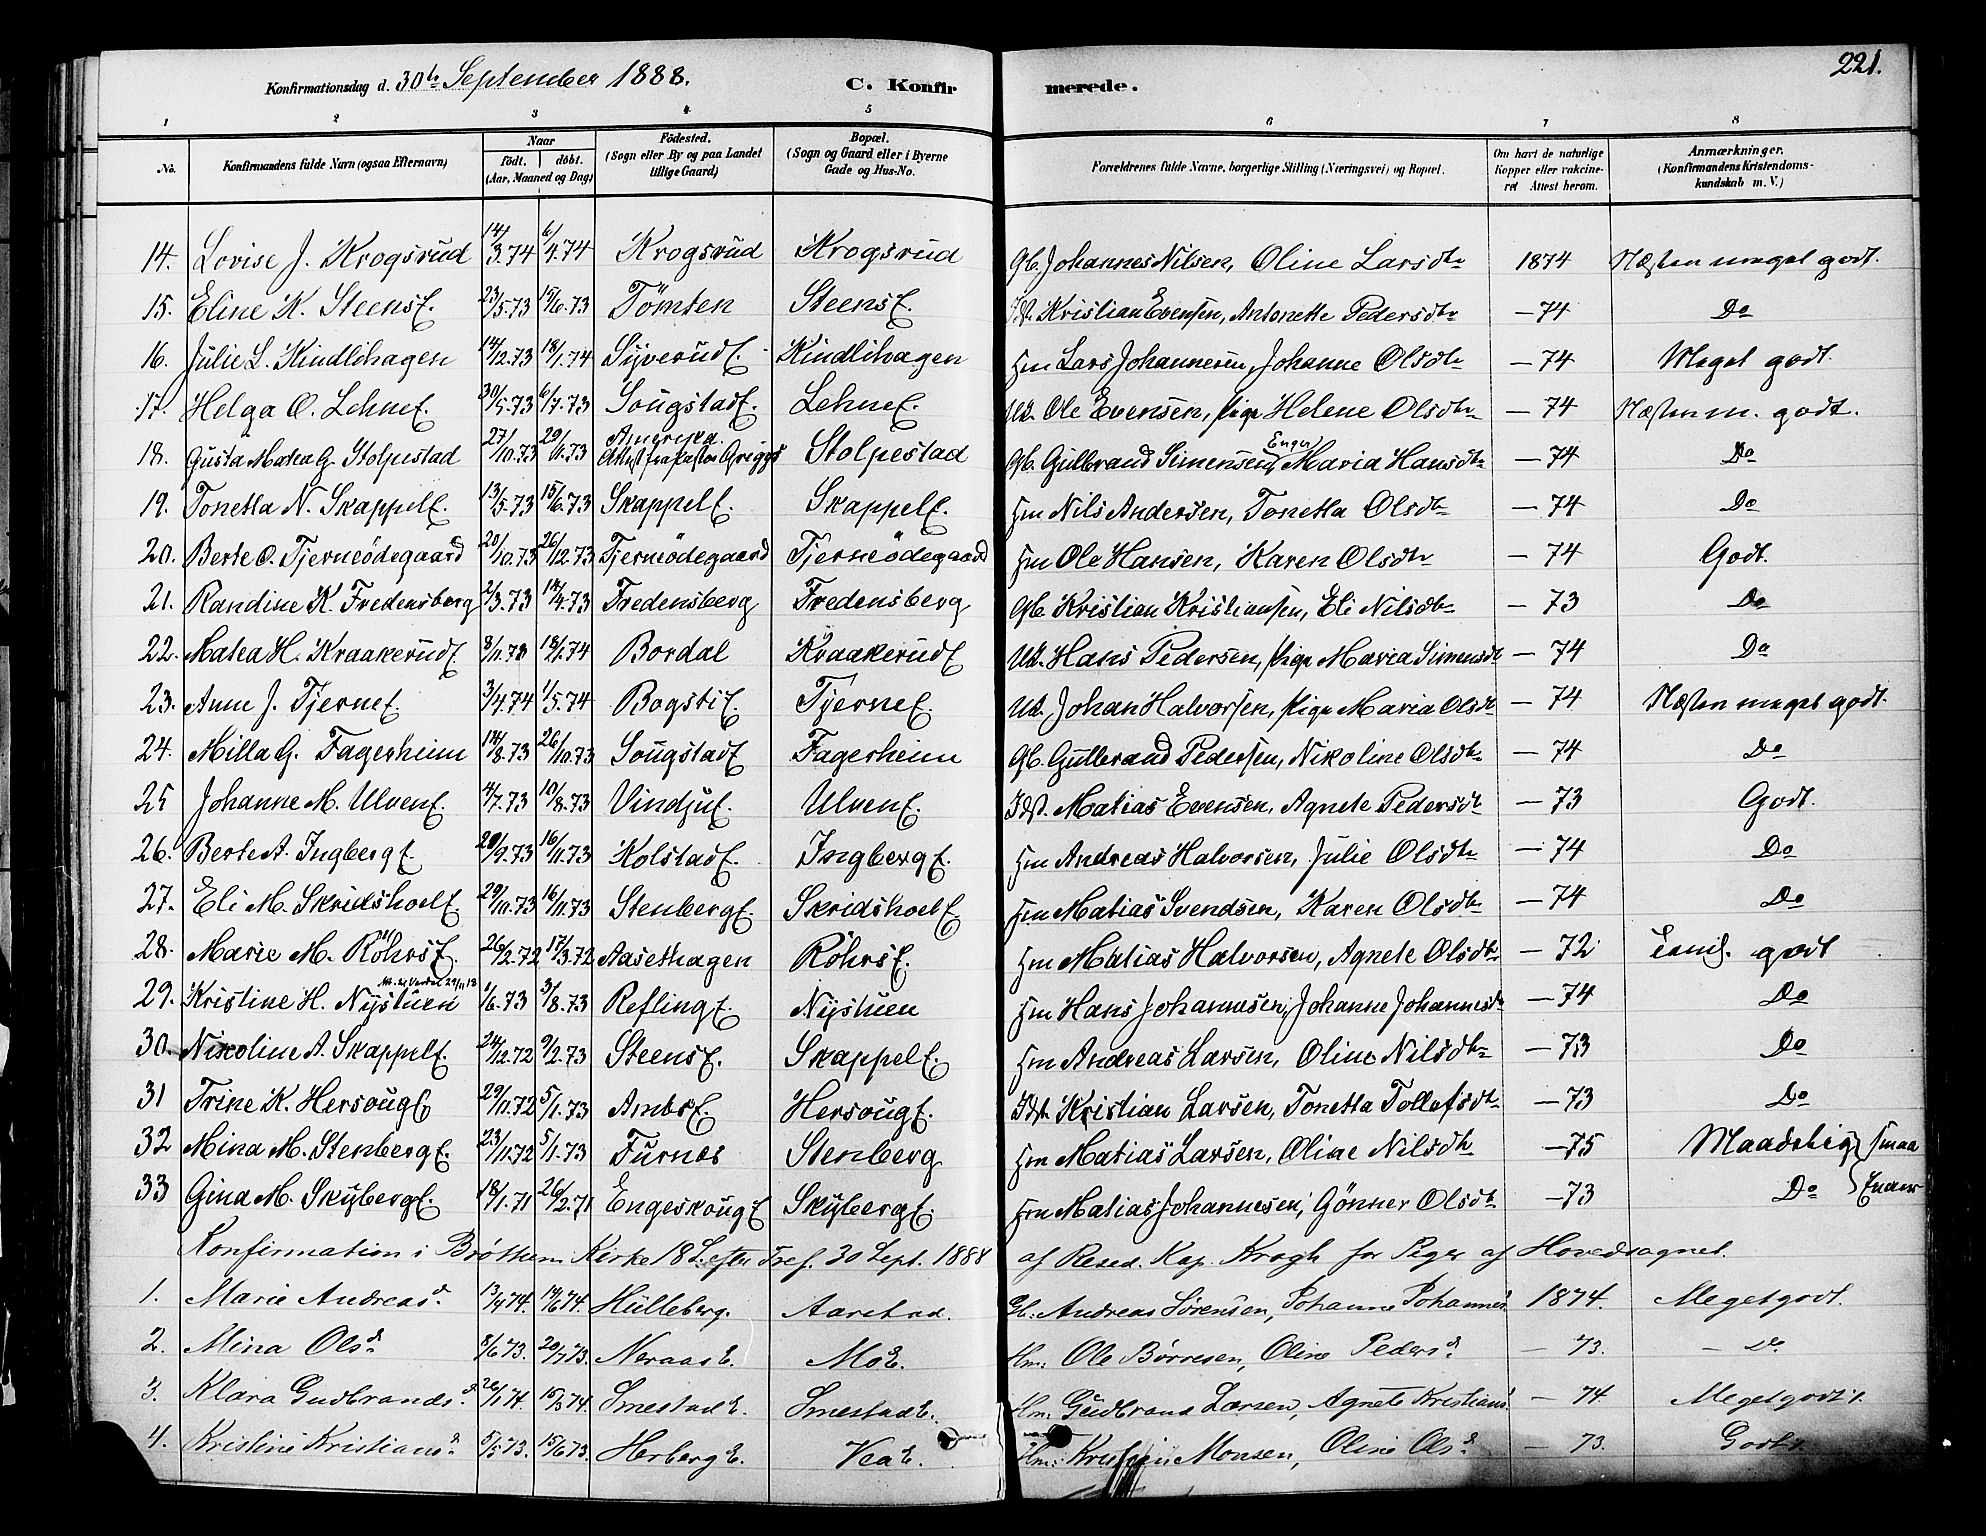 221.
Konfirmationsdag d. 30te September 1888. C. Konfir merede.
1 2 3 4 5 6 7 8
No. Konfirmandens fulde Navn (ogsaa Efternavn) Naar født. døbt. (Aar, Maaned og Dag) Fødested. (Sogn eller By og paa Landet tillige Gaard) Bopæl. (Sogn og Gaard eller i Byerne Gade og Hus-No. Forældrenes fulde Navne, borgerlige Stilling (Næringsvei) og Bopæl. Om havt de naturlige Kopper eller vakcineret Attest herom. Anmærkninger. (Konfirmandens Kristendomskundskab m. V.)
14. Lovise J. Krogsrud 14/3.74 6/4.74 Krogsrud Krogsrud Gb. Johannes Nilsen, Oline Larsdtr 1874 Næsten meget godt.
15. Eline K. Steense. 23/5.73 15/6.73 Tömten Steense. Idst. Kristian Evensen, Antonette Pedersdtr — 74 Do
16. Julie L. Kindlihagen 14/12.73 18/1.74 Syverude. Kindlihagen Hm Lars Johannesen, Johanne Olsdtr — 74 Meget godt.
17. Helga O. Lehne. 30/5.73 6/7.73 Sougstade. Lehne. Uk. Ole Evensen, pige Helene Olsdtr — 74 Næsten m. godt.
18. Gusta Matea G. Stolpestad 27/10.73 29/11.73 Amerika. Attest fra Pastor Griggs Stolpestad Gb. Gulbrand Simensen Enger, Maria Hansdtr — 74 Do
19. Tonetta N. Skappele. 13/5.73 15/6.73 Skappele. Skappele. Hm Nils Andersen, Tonetta Olsdtr — 74 Do
20. Berte O. Tjerneödegaard 20/10.73 26/12.73 Tjerneödegaard Tjerneödegaard Hm Ole Hansen, Karen Olsdtr — 74 Godt.
21. Randine K. Fredensberg 2/3.73 14/4.73 Fredensberg Fredensberg Gb. Kristian Kristiansen, Eli Nilsdtr — 73 Do
22. Matea H. Kraakerude. 8/11.73 18/1.74 Bordal Kraakerude Uk. Hans Pedersen, pige Maria Simensdtr — 74 Do
23. Anne J. Tjerne. 3/4.74 1/5.74 Bogstie. Tjerne. Uk. Johan Halvorsen, pige Maria Olsdtr — 74 Næsten meget godt.
24. Milla G. Fagerheim 14/8.73 26/10.73 Sougstade Fagerheim Gb. Gulbrand Pedersen, Nikoline Olsdtr — 74 Do
25 Johanne M. Ulvene. 4/7.73 10/8.73 Vindjue. Ulvene. Idst. Matias Evensen, Agnete Pedersdtr — 73 Godt.
26. Berte A. Ingberge. 20/9.73 16/11.73 Kolstade. Ingberge. Hm Andreas Halvorsen, Julie Olsdtr — 74 Do
27. Eli M. Skridshole. 29/10.73 16/11.73 Stenberge. Skridshole. Hm Matias Svendsen, Karen Olsdtr — 74 Do
28. Marie M. Röhrse. 26/2.72 17/3.72 Aasethagen Röhrse. Hm Matias Halvorsen, Agnete Olsdtr — 72 Teml. godt
29. Kristine H. Nystuen 1/6.73 3/8.73 Reflinge. Nystuen Hm Hans Johannesen, Johanne Johannesdtr — 74 Do
30. Nikoline A. Skappele. 24/12.72 9/2.73 Steense. Skappele. Hm Andreas Larsen, Oline Nilsdtr — 73 Do
31 Trine K. Hersouge, 29/11.72 5/1.73 Ambse. Hersouge. Idst. Kristian Larsen, Tonetta Tollefsdtr — 73 Do
32 Mina M. Stenberge. 23/11.72 5/1.73 Furnes Stenberg Hm Matias Larsen, Oline Nilsdtr —75 Maadelig smaa
33 Gina M. Skyberge. 18/1.71 26/2.71 Engeskouge Skyberge. Hm Matias Johannesen, Gönner Olsdtr —73 Do Evner
Konfirmation i Brøttum Kirke 18 S. efter Tref. 30 Sept. 1888 af Resed. Kap. Krogh for Piger af Hovedsognet.
1. Marie Andreasd. 13/4 74. 14/6 74. Hulleberg. Aarstad. Gb. Andreas Sørensen, Johanne Johannesd. 1874. Meget godt.
2. Mina Olsd. 8/6 73. 20/7 73. Neraas E. Mo E. Hm. Ole Børresen, Oline Pedersd. — 73. — Do
3. Klara Gudbrandsd. 26/1 74. 15/3 74. Smestad E. Smestad E. Hm. Gudbrand Larsen, Agnete Kristiansd. — 74. Meget godt.
4. Kristine Kristiansd. 5/5 73. 15/6 73. Herberg E. Vea E. Hm. Kristian Monsen, Oline Olsd. — 73. Godt.